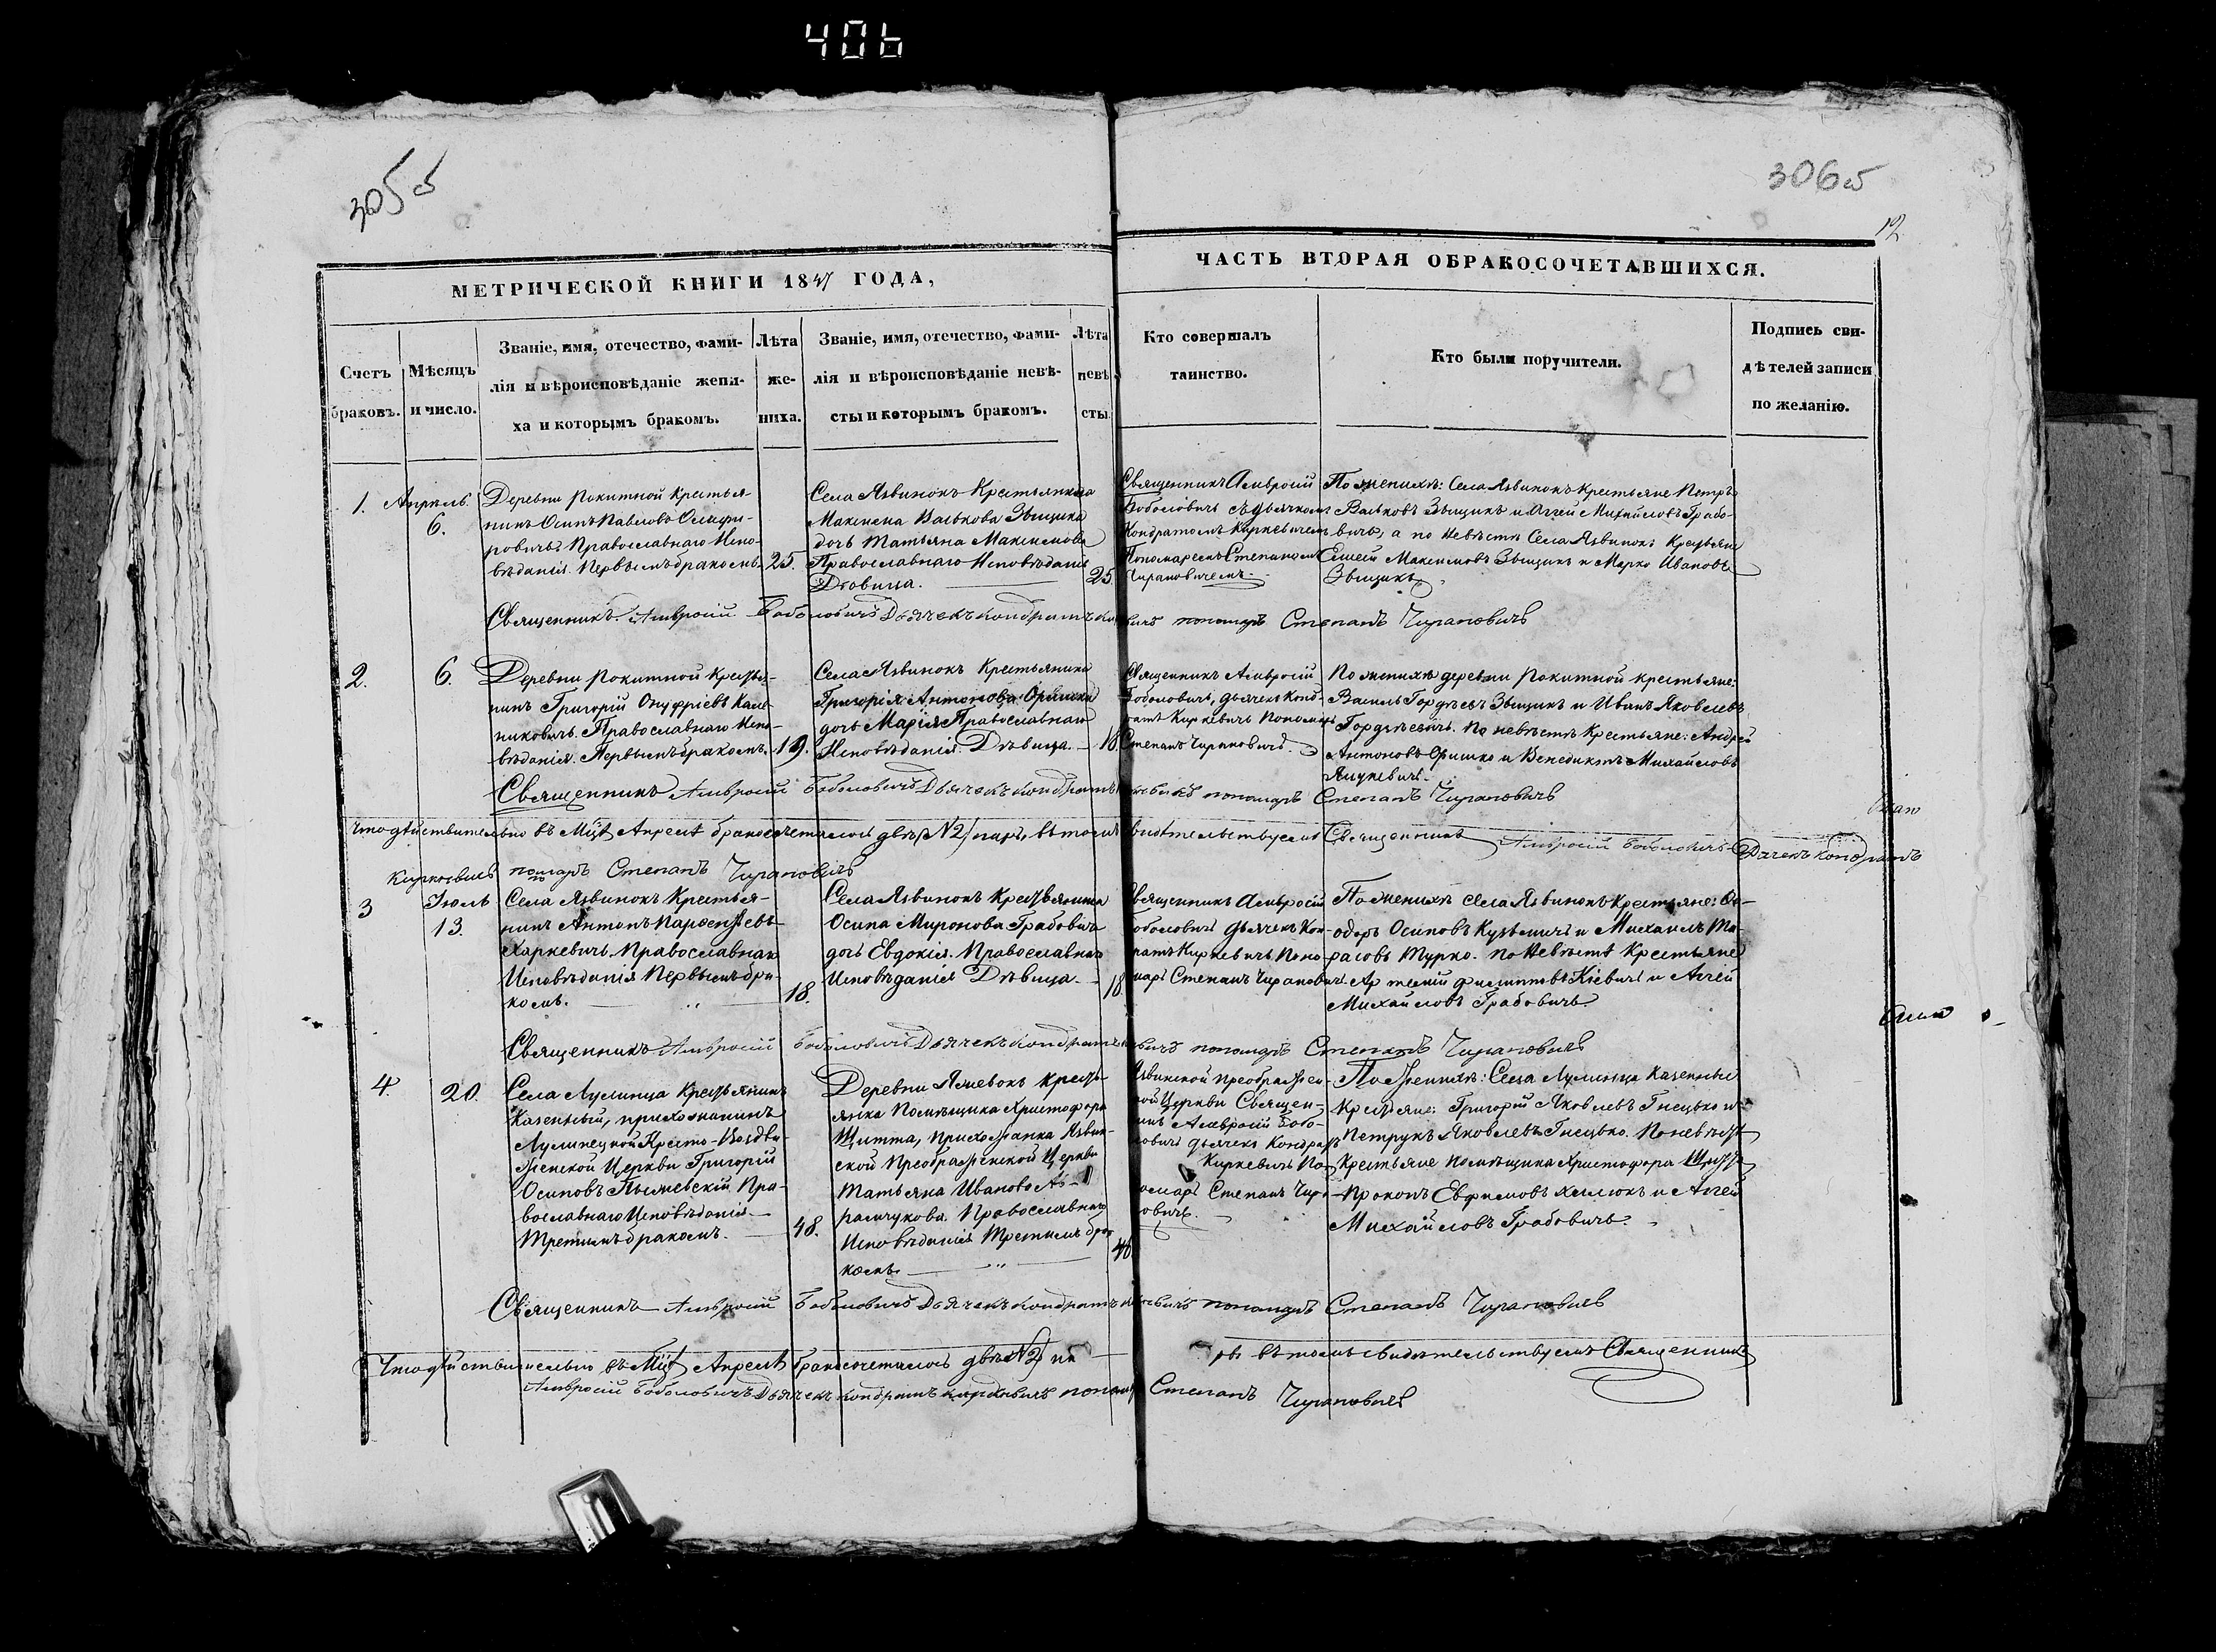 406
305 об
306 об
12
МЕТРИЧЕСКОЙ КНИГИ 1847 ГОДА,
ЧАСТЬ ВТОРАЯ ОБРАКОСОЧЕТАВШИХСЯ.
Счетъ
браковъ.
Мѣсяцъ
и число.
Званіе, имя, отечество, фами-
лія и вѣроисповѣданіе жени-
ха и которымъ бракомъ.
Лѣта
же-
ниха.
Званіе, имя, отечество, фами-
лія и вѣроисповѣданіе невѣ-
сты и которымъ бракомъ.
Лѣта
невѣ
сты.
Кто совершалъ
таинство.
Кто были поручители.
Подпись сви-
дѣтелей записи
по желанію.
1.
Апрѣль
6.
Деревни Рокитной Крестья-
нинъ Осипъ Павловъ
Православнаго Испо-
вѣданія. Первымъ бракомъ.
25.
Села Язвинокъ Крестьянина
Максима Валькова Зыщика
дочь Татьяна Максимова
Православнаго Исповѣданія
Дѣвица.
25
Священникъ Амвросій
Боболовичъ съ дьячкомъ
Кондратомъ Киркевичемъ
Пономаремъ Степаномъ
Чирановичемъ.
По женихѣ: Села Язвинокъ крестьяне Петръ
Вальковъ Зыщикъ и Аггей Михайловъ Грабо-
вичъ, а по невѣстѣ Села Язвинокъ Крестьяне
Максимовъ Зыщикъ и Марко Ивановъ
Зыщикъ.
Священникъ Амвросій Боболовичъ Дьячекъ Кондратъ пономарь Степанъ Чирановичъ
2.
6.
Деревни Рокитной Крестья-
нинъ Григорій Онуфріевъ
Православнаго Испо-
вѣданія. Первымъ бракомъ.
19.
Села Язвинокъ Крестьянина
Григорія Антонова Оришка
дочь Марія Православнаго
Исповѣданія. Дѣвица.
18
Священникъ Амвросій
Боболовичъ, дьячекъ Конд-
ратъ Киркевичъ Пономарь
Степанъ Чирановичъ.
По женихѣ деревни Рокитной крестьяне:
Василь Гордѣевъ Зыщикъ и Иванъ Яковлевъ
Гордѣевичъ. По невѣстѣ Крестьяне: Андрей
Антоновъ Оришко и Венедиктъ Михайловъ
Янукевичъ.
Священникъ Амвросій Боболовичъ Дьячекъ Кондратъ пономарь Степанъ Чирановичъ
Что дѣйствительно въ Мцѣ Апрелѣ бракосочеталось двѣ /№ 2/ пары, въ томъ свидѣтельствуемъ Священникъ Амвросій Боболовичъ Дьячекъ Кондратъ
Киркевичъ помарь Степанъ Чирановичъ
3
Іюль
13.
Села Язвинокъ Крестья-
нинъ Антонъ Парфентьевъ
Харкевичъ. Православнаго
Исповѣданія Первымъ бра-
комъ.
18.
Села Язвинокъ Крестьянина
Осипа Миронова Грабовича
дочь Евдокія. Православнаго
Исповѣданія Дѣвица.
18
Священникъ Амвросій
Боболовичъ дьячекъ Кон-
дратъ Киркевичъ, Поно-
марь Степанъ Чирановичъ
По женихѣ села Язвинокъ Крестьяне: Ѳе-
одоръ Осиповъ Кузьмичъ и Михаилъ Та-
расовъ Турко. По невѣстѣ Крестьяне
Филиповъ Кіевичъ и Аггей
Михайловъ Грабовичъ.
Священникъ Амвросій Боболовичъ Дьячекъ Кондратъ пономарь Степанъ Чирановичъ
4.
20.
Села Лулинца Крестьянинъ
Казенный, прихожанинъ
Лулинецкой Кресто-Воздви-
женской Церкви Григорій
Осиповъ Пра-
вославнаго Исповѣданія.
Третимъ бракомъ.
48.
Деревни Ямевокъ кресть-
янка Помѣщика Христофора
Щитта, прихожанка Язвин-
ской Преображенской Церкви
Татьяна Иванова Аб-
рамчукова. Православнаго
Исповѣданія Третимъ бра
комъ.
40
Язвинской Преображен-
ской Церкви Священ-
никъ Амвросій Бобо-
ловичъ дьячекъ Кондратъ
Киркевичъ По-
номарь Степанъ Чира-
новичъ.
По женихѣ: Села Лулинца Казенные
Крестьяне: Григорій Яковлевъ Гнецько и
Петрукъ Яковлевъ Гнецько. По невѣстѣ
Крестьяне помѣщика Христофора Щитта
Прокопъ Евфимовъ Хмлюкъ и Аггей
Михайловъ Грабовичъ.
Священникъ Амвросій Боболовичъ Дьячекъ Кондратъ пономарь Степанъ Чирановичъ
Что дѣйствительно въ Мцѣ Апрелѣ бракосочеталось двѣ /№ 2/ въ томъ свидѣтельствуемъ Священникъ
Амвросій Боболовичъ Дьячекъ Кондратъ Киркевичъ пономарь Степанъ Чирановичъ